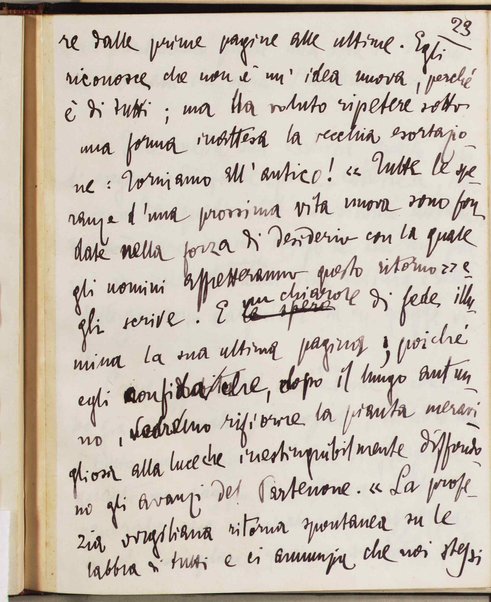 23
re dalle prime pagine alle ultime. Egli
riconosce che non è un' idea nuova, perché
è di tutti; ma ha voluto ripetere sotto
una forma inattesa la vecchia esortazio
ne: Torniamo all'antico! « Tutte le spe
ranze d'una prossima vita nuova sono fon
date nella forza di desiderio con la quale
gli uomini affretteranno questo ritorno » e
gli scrive. E un chiarore di fede illu
mina la sua ultima pagina; poiché
egli confida che, dopo il lungo autun
no, vedremo rifiorire la pianta meravi
gliosa alla luce che inestinguibilmente diffondo
no gli avanzi del Partenone. « La profe
zia virgiliana ritorna spontanea su le
labbra di tutti e ci annunzia che noi stessi